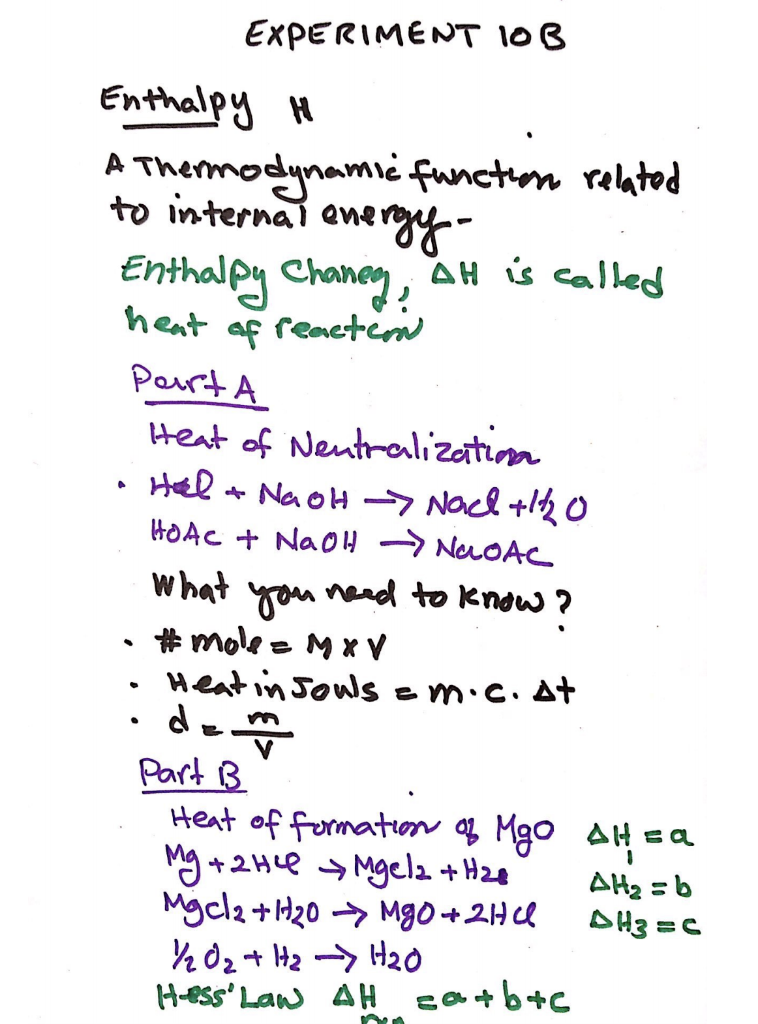 EXPERIMENT 10B
Enthalpy H
A Thermodynamic function related
to internal energy-
Enthalpy Chaneg, ΔH is called
heat of reaction
Part A
Heat of Neutralization
• HCl + NaOH → NaCl + H2O
HOAc + NaOH → NaOAc
What you need to know?
• # mole = M x V
• Heat in Jouls = m·c·Δt
• d = m/V
Part B
Heat of formation of MgO ΔH1 = a
Mg + 2HCl → MgCl2 + H2 ΔH2 = b
MgCl2 + H2O → MgO + 2HCl ΔH3 = c
1/2 O2 + H2 → H2O
Hess' Law ΔH = a + b + c